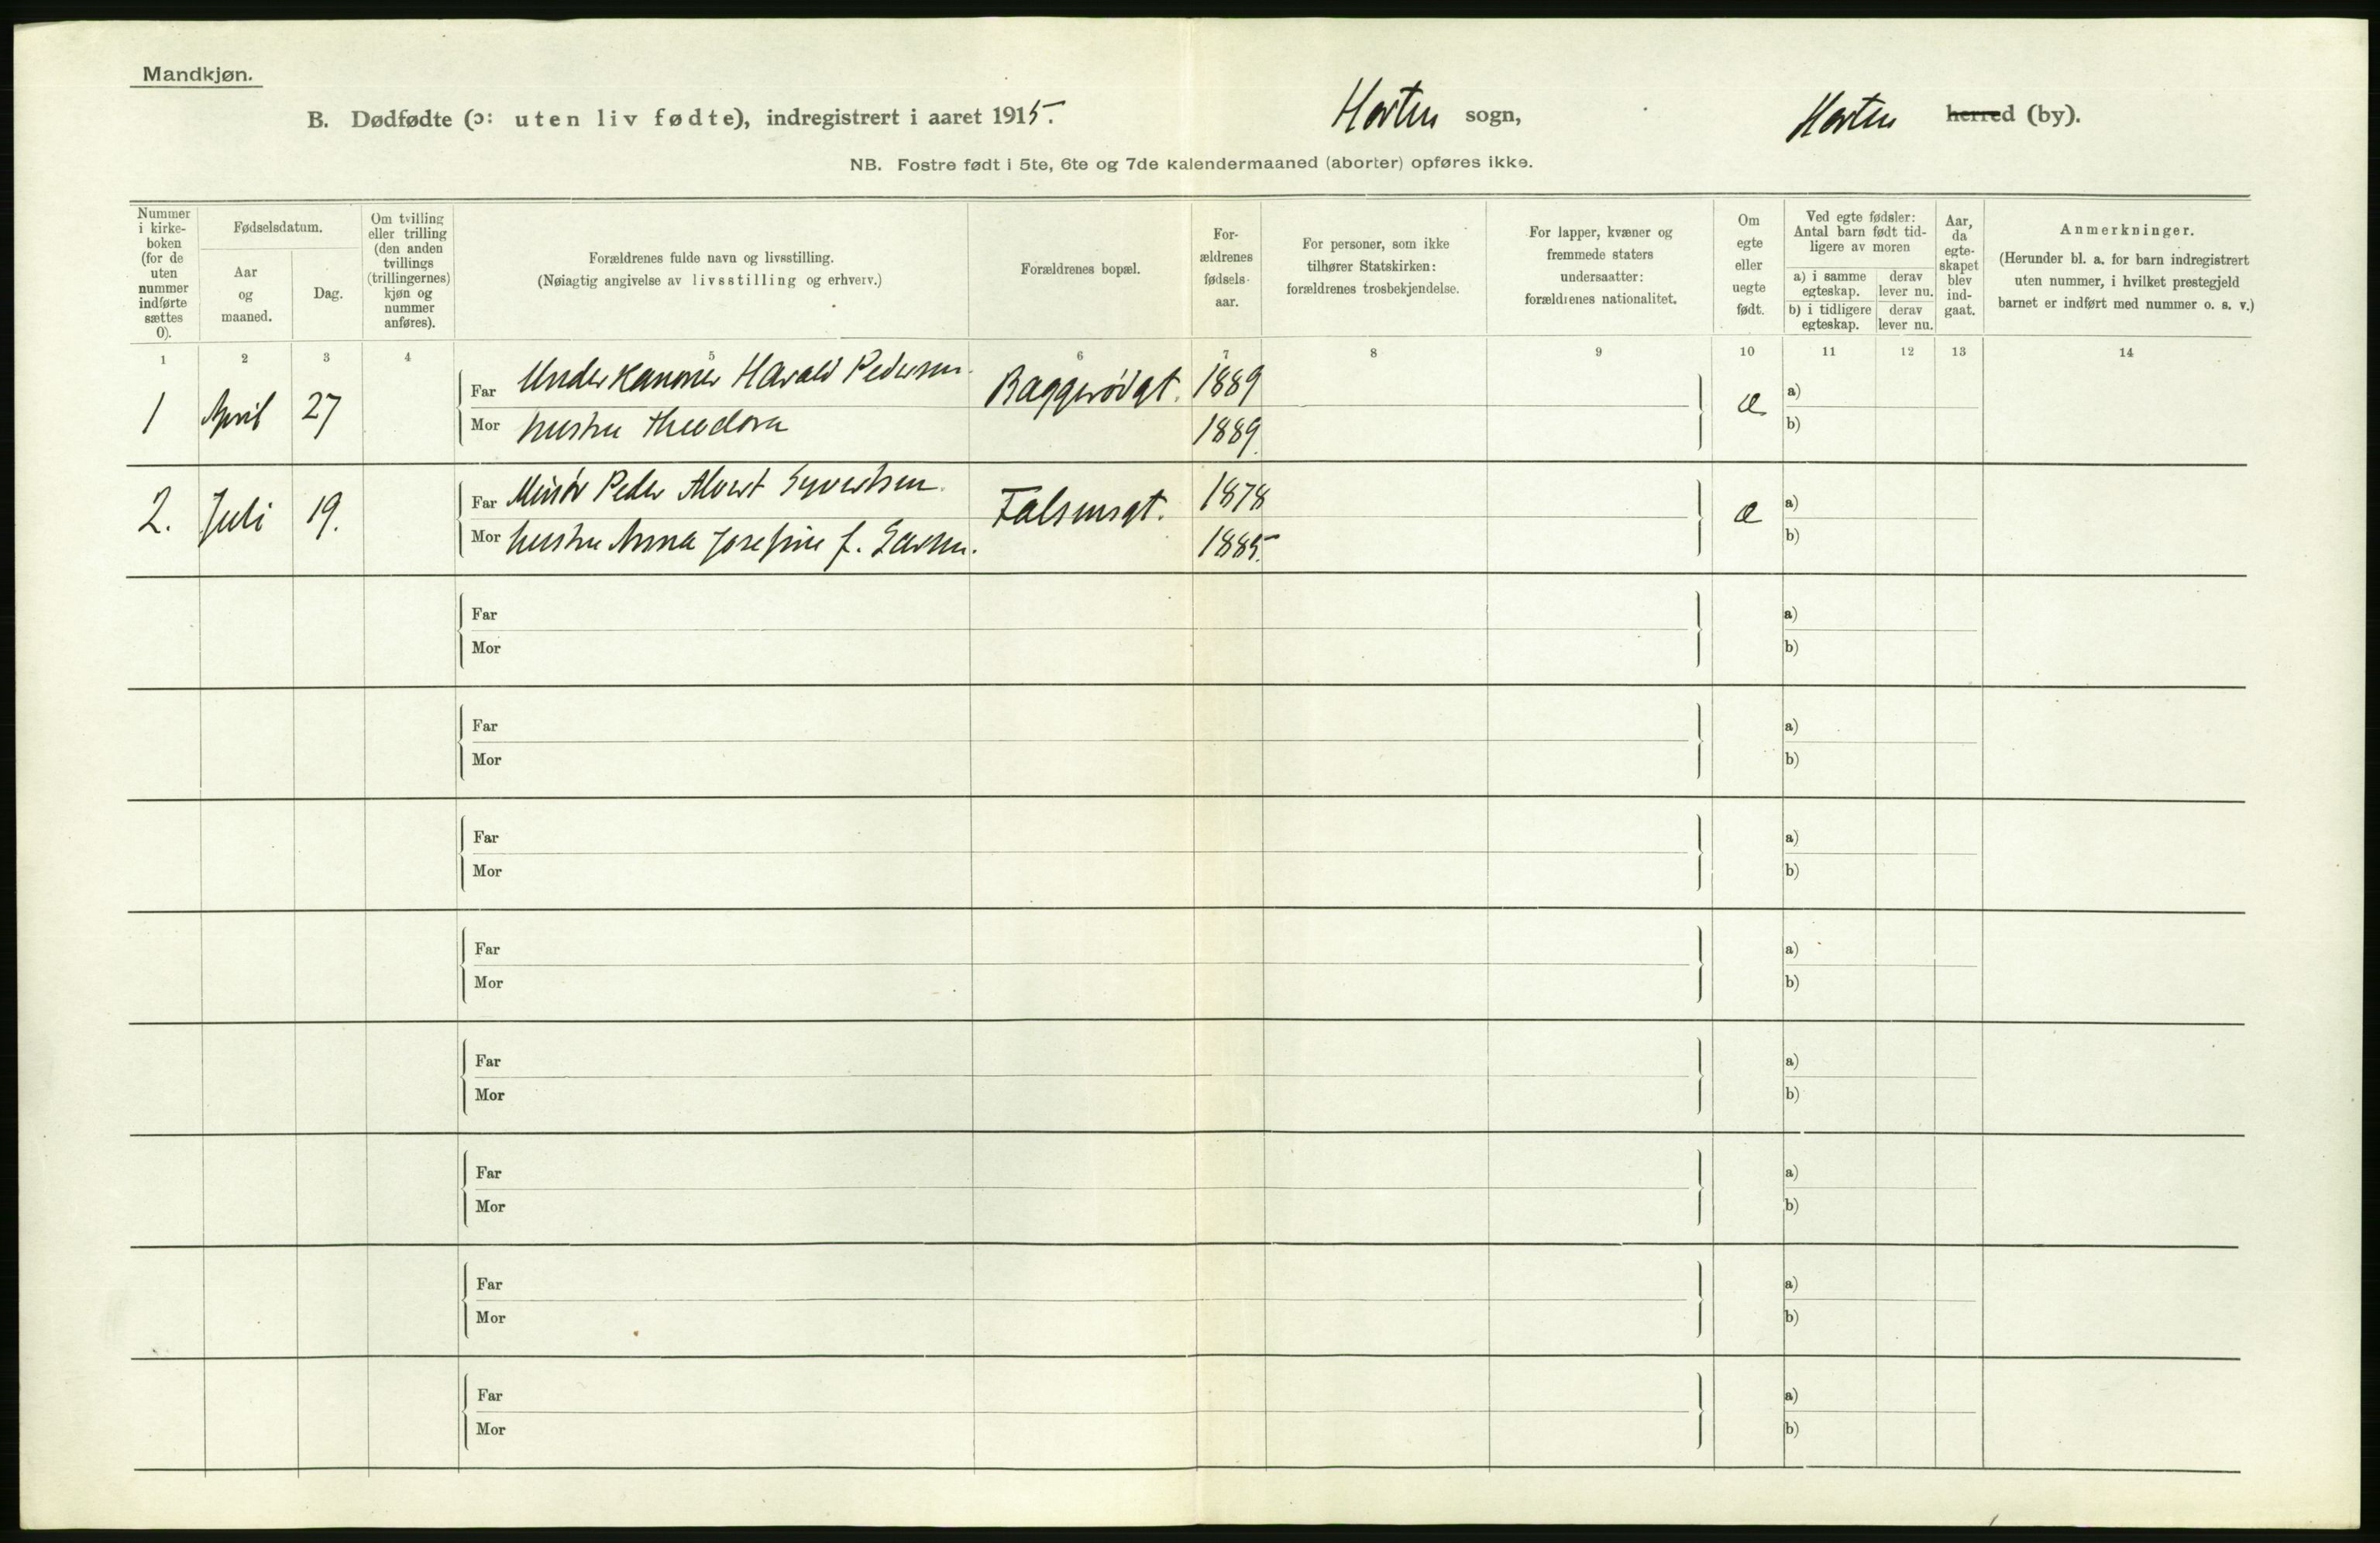 Mandkjøn.
B. Dødfødte (ɔ: uten liv fødte), indregistrert i aaret 1915. Horten sogn, Horten herred (by).
NB. Fostre født i 5te, 6te og 7de kalendermaaned (aborter) opføres ikke.
Nummer
i kirke-
boken
(for de
uten
nummer
indførte
sættes
0).
Fødselsdatum.
Aar
og
maaned.
Dag.
Om tvilling
eller trilling
(den anden
tvillings
(trillingernes)
kjøn og
nummer
anføres).
Forældrenes fulde navn og livsstilling.
(Nøiagtig angivelse av livsstilling og erhverv.)
Forældrenes bopæl.
For-
ældrenes
fødsels-
aar.
For personer, som ikke
tilhører Statskirken:
forældrenes trosbekjendelse.
For lapper, kvæner og
fremmede staters
undersaatter:
forældrenes nationalitet.
Om
egte
eller
uegte
født.
Ved egte fødsler:
Antal barn født tid-
ligere av moren
a) i samme
egteskap.
derav
lever nu.
b) i tidligere
egteskap.
derav
lever nu.
Aar,
da
egte-
skapet
blev
ind-
gaat.
Anmerkninger.
(Herunder bl. a. for barn indregistrert
uten nummer, i hvilket prestegjeld
barnet er indført med nummer o. s. v.)
1 2 3 4 5 6 7 8 9 10 11 12 13 14
1 April 27 Far Underkanoner Harald Pedersen. Baggerødgt. 1889 e a)
Mor hustru Theodora 1889. b)
2. Juli 19. Far Minør Peder Alvert Syvertsen. Falsensgt. 1878 e a)
Mor hustru Anna Josefine f. Larsen. 1885. b)
Far a)
Mor b)
Far a)
Mor b)
Far a)
Mor b)
Far a)
Mor b)
Far a)
Mor b)
Far a)
Mor b)
Far a)
Mor b)
Far a)
Mor b)